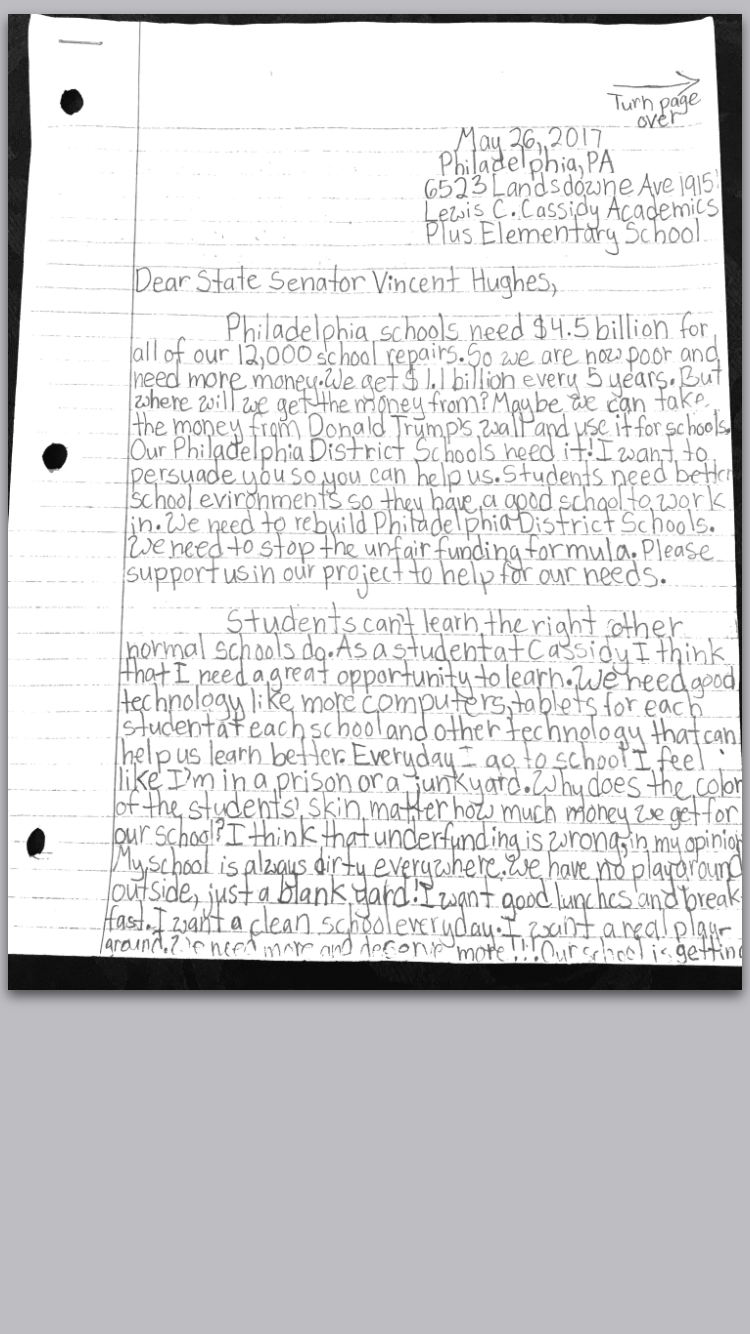 Turn page
over
May 26, 2017
Philadelphia, PA
6523 Landsdowne Ave 1915
Lewis C. Cassidy Academics
Plus Elementary School
Dear State Senator Vincent Hughes,
Philadelphia schools need $4.5 billion for
all of our 12,000 school repairs. So we are now poor and
need more money. We get $1.1 billion every 5 years. But
where will we get the money from? Maybe we can take
the money from Donald Trump's wall and use it for schools.
Our Philadelphia District Schools need it! I want to
persuade you so you can help us. Students need better
school evironments so they have a good school to work
in. We need to rebuild Philadelphia District Schools.
We need to stop the unfair funding formula. Please
support us in our project to help for our needs.
Students can't learn the right other
normal schools do. As a student at Cassidy I think
that I need a great opportunity to learn. We need good
technology like more computers, tablets for each
student at each school and other technology that can
help us learn better. Everyday I go to school I feel
like I'm in a prison or a junkyard. Why does the color
of the students' skin matter how much money we get for
our school? I think that underfunding is wrong, in my opinion
My school is always dirty everywhere. We have no playground
outside, just a blank yard! I want good lunches and break-
fast. I want a clean school everyday. I want a real play-
ground. We need more and deserve more!!! Our school is getting